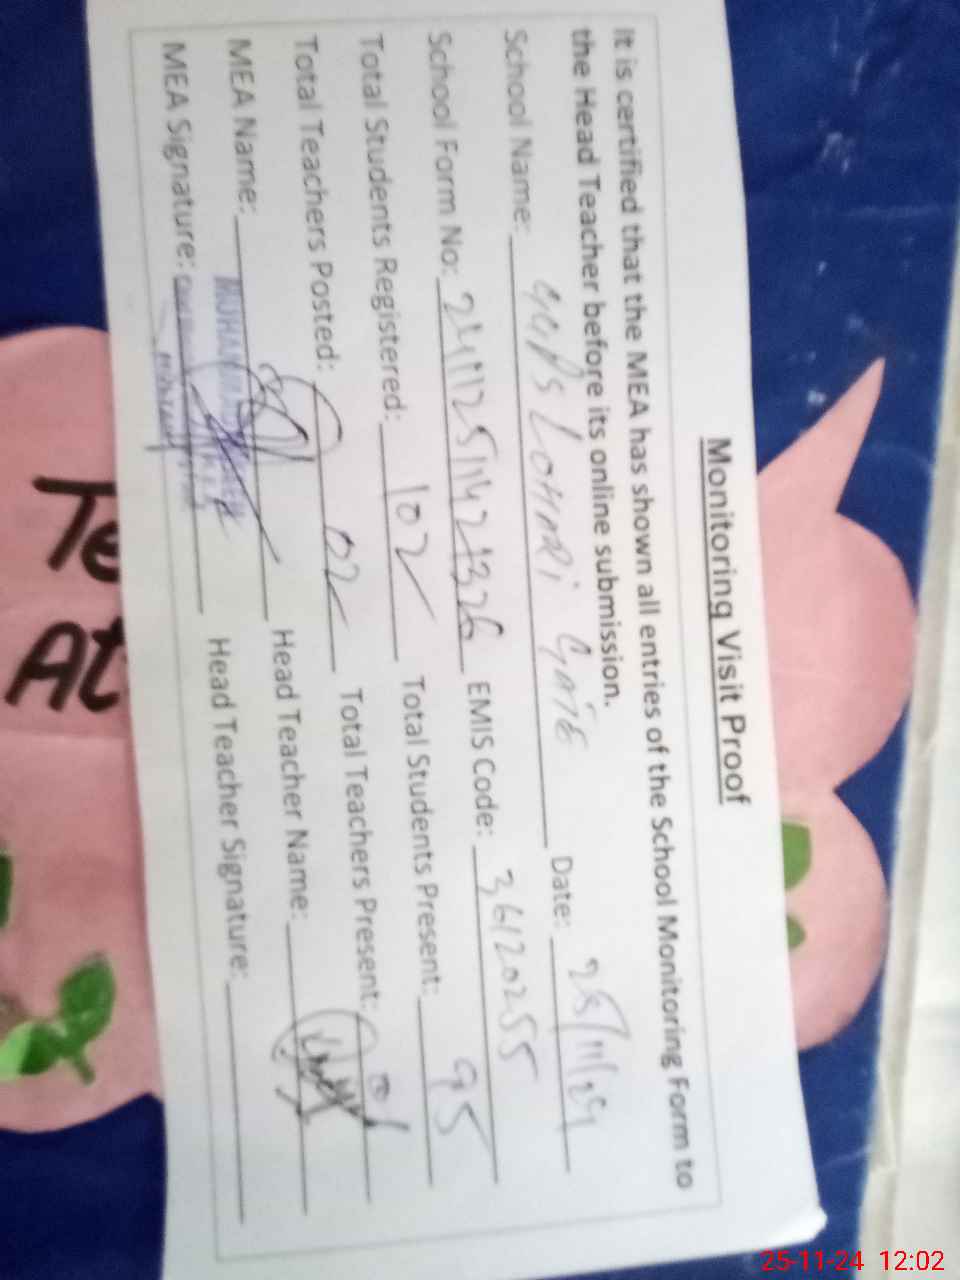 Monitoring Visit Proof
It is certified that the MEA has shown all entries of the School Monitoring Form to
the Head Teacher before its online submission.
School Name: GGPS LOHARI Gate Date: 25/11/24
School Form No: EMIS Code: 36120255
Total Students Registered: 102 Total Students Present: 95
Total Teachers Posted: 02 Total Teachers Present:
MEA Name: Head Teacher Name:
MEA Signature: Head Teacher Signature:
Te
At
25-11-24 12:02